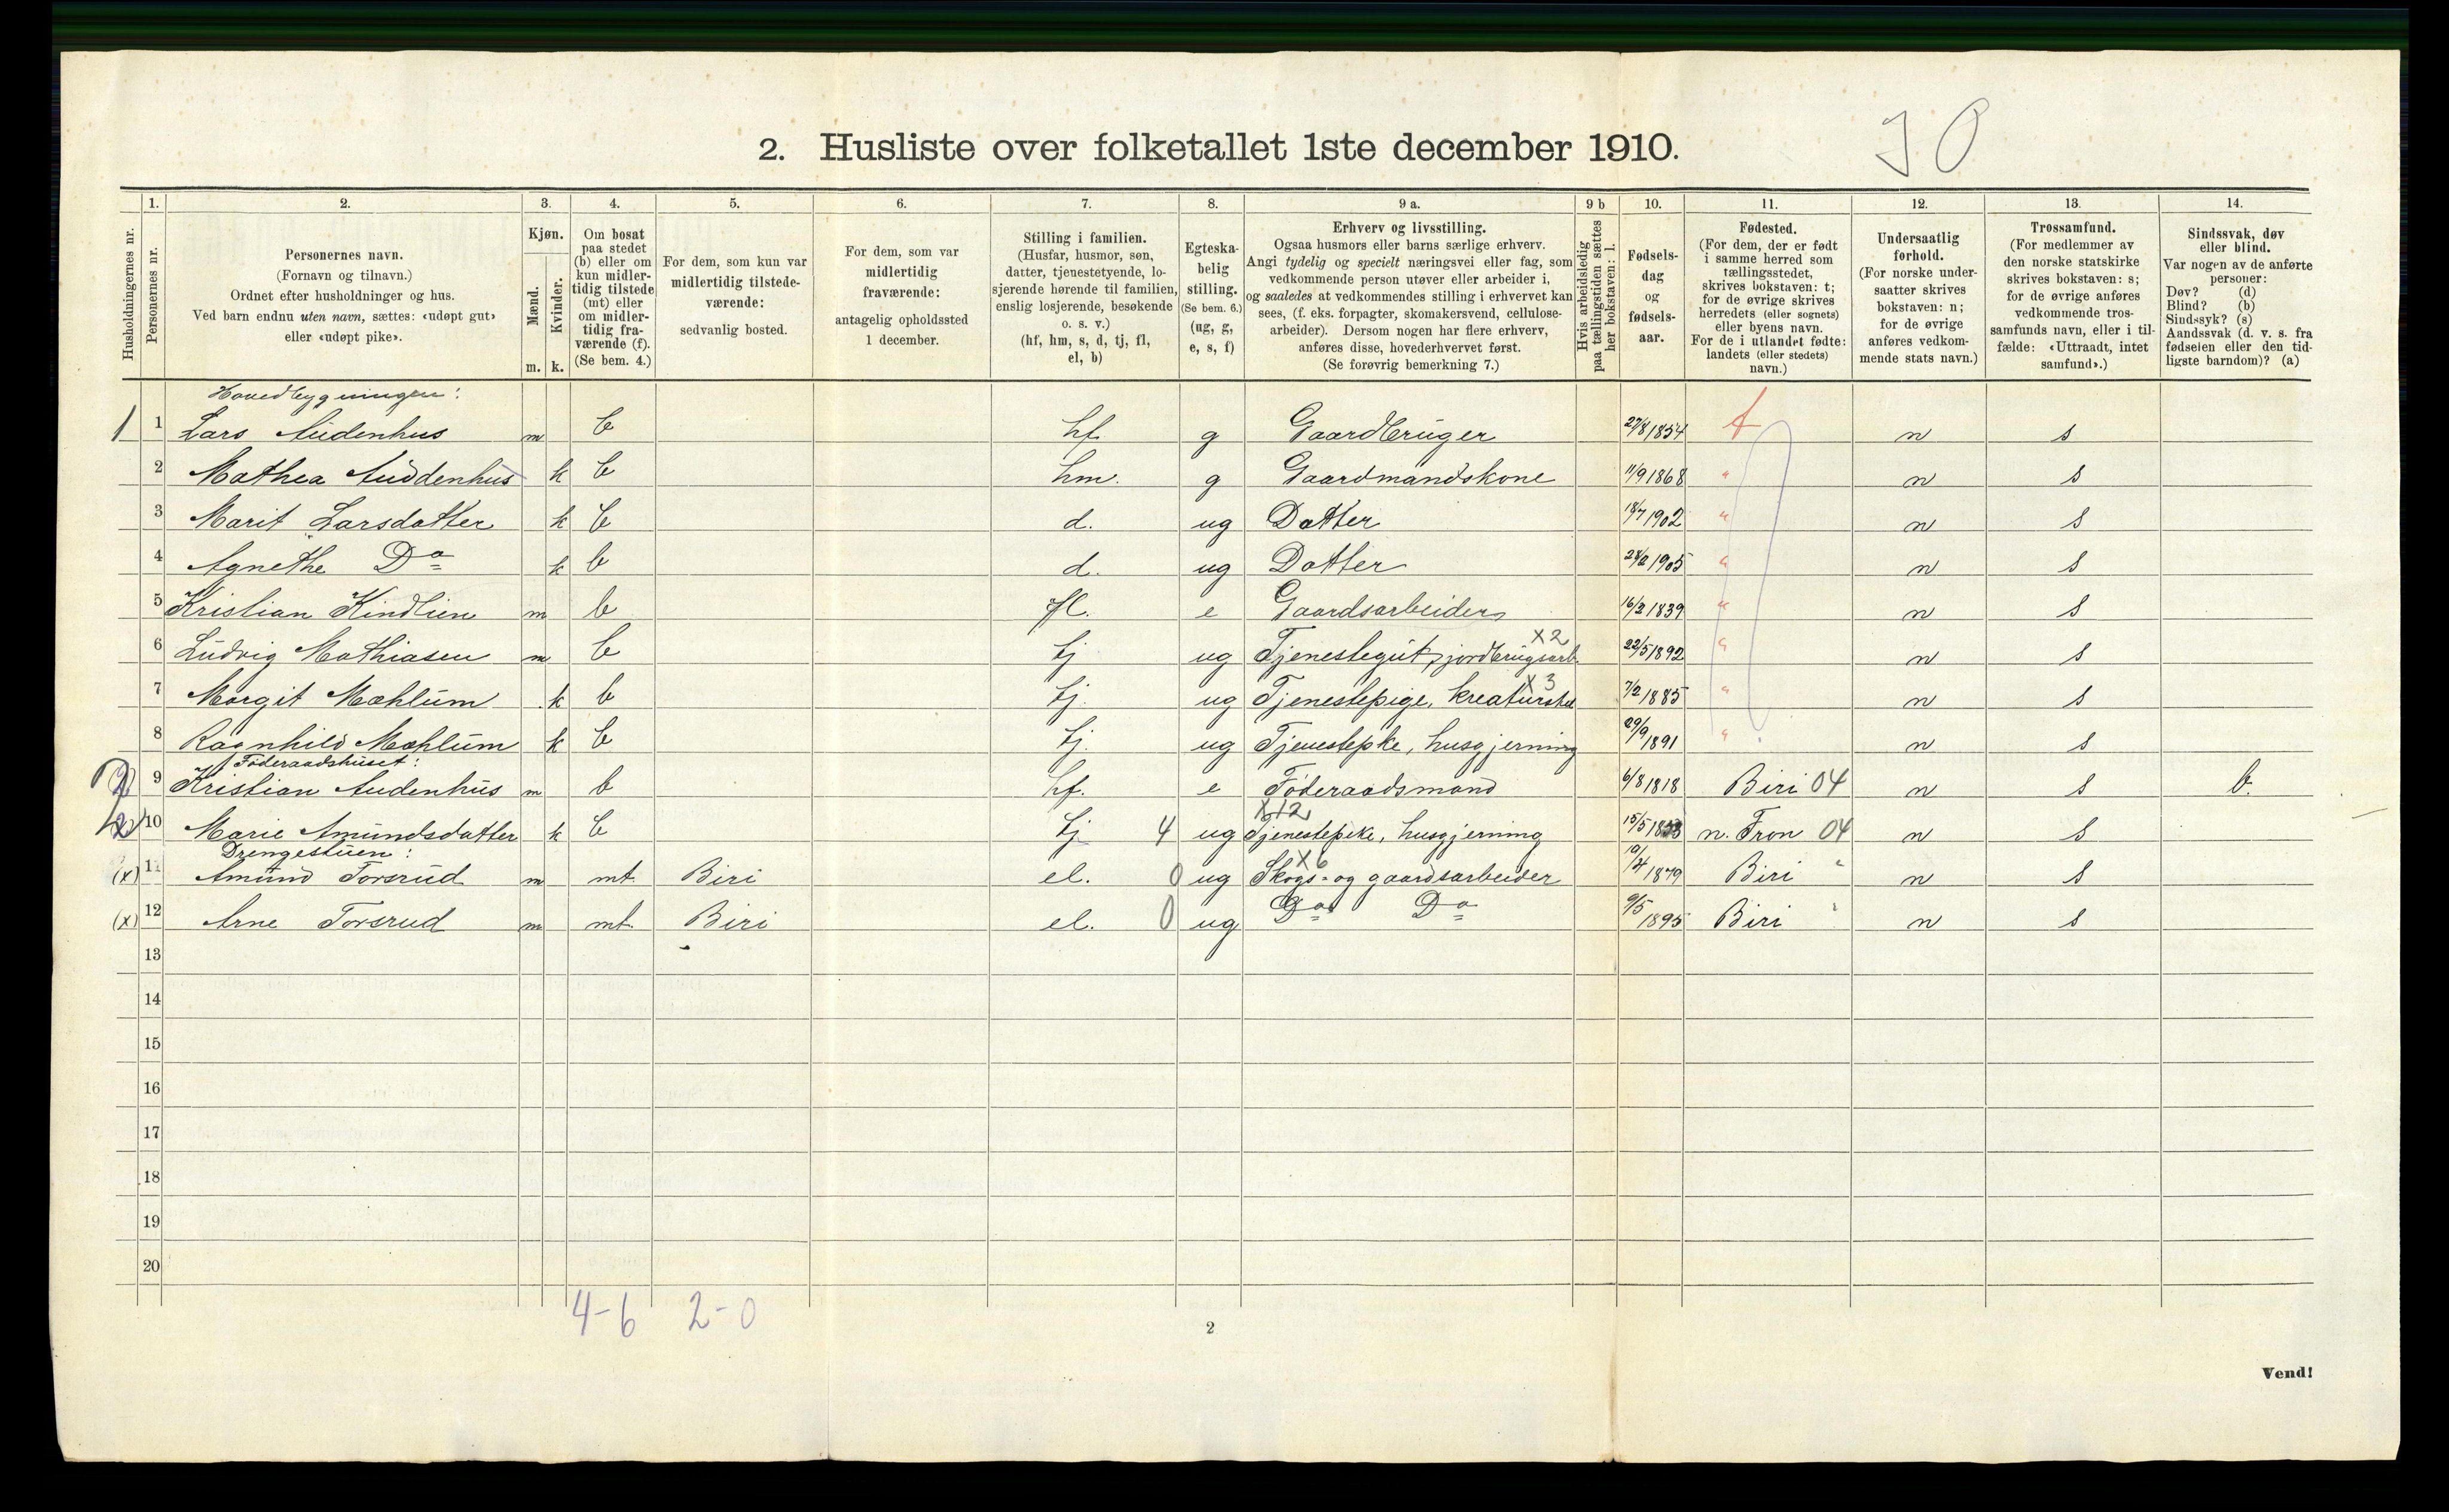 2. Husliste over folketallet 1ste december 1910.
30
Husholdningernes nr.
1. Personernes nr.
2. Personernes navn. (Fornavn og tilnavn.) Ordnet efter husholdninger og hus. Ved barn endnu uten navn, sættes: «udøpt gut» eller «udøpt pike».
3. Kjøn. Mænd. m. Kvinder. k.
4. Om bosat paa stedet (b) eller om kun midlertidig tilstede (mt) eller om midlertidig fraværende (f). (Se bem. 4.)
5. For dem, som kun var midlertidig tilstedeværende: sedvanlig bosted.
6. For dem, som var midlertidig fraværende: antagelig opholdssted 1 december.
7. Stilling i familien. (Husfar, husmor, søn, datter, tjenestetyende, losjerende hørende til familien, enslig losjerende, besøkende o. s. v.) (hf, hm, s, d, tj, fl, el, b)
8. Egteskabelig stilling. (Se bem. 6.) (ug, g, e, s, f)
9 a. Erhverv og livsstilling. Ogsaa husmors eller barns særlige erhverv. Angi tydelig og specielt næringsvei eller fag, som vedkommende person utøver eller arbeider i, og saaledes at vedkommendes stilling i erhvervet kan sees, (f. eks. forpagter, skomakersvend, cellulosearbeider). Dersom nogen har flere erhverv, anføres disse, hovederhvervet først. (Se forøvrig bemerkning 7.)
9 b Hvis arbeidsledig paa tællingstiden sættes her bokstaven: l.
10. Fødselsdag og fødselsaar.
11. Fødested. (For dem, der er født i samme herred som tællingsstedet, skrives bokstaven: t; for de øvrige skrives herredets (eller sognets) eller byens navn. For de i utlandet fødte: landets (eller stedets) navn.)
12. Undersaatlig forhold. (For norske undersaatter skrives bokstaven: n; for de øvrige anføres vedkommende stats navn.)
13. Trossamfund. (For medlemmer av den norske statskirke skrives bokstaven: s; for de øvrige anføres vedkommende trossamfunds navn, eller i tilfælde: «Uttraadt, intet samfund».)
14. Sindssvak, døv eller blind. Var nogen av de anførte personer: Døv? (d) Blind? (b) Sindssyk? (s) Aandssvak (d. v. s. fra fødselen eller den tidligste barndom)? (a)
Hovedbygningen:
1 1 Lars Audenhus m b hf. g Gaardbruger 27/8 1854 t n s
2 Mathea Auddenhus k b hm. g Gaardmandskone 11/9 1868 " n s
3 Marit Larsdatter k b d. ug Datter 18/7 1902 " n s
4 Agnethe Do k b d. ug Datter 1905 " n s
5 Kristian Kindlien m b fl. e Gaardsarbeider 16/3 1839 " n s
6 Ludvig Mathiasen m b tj ug Tjenestegut, jordbrugsarb. X2 22/5 1892 " n s
7 Margit Mæhlum k b tj. ug Tjenestepige, kreaturstel X3 7/2 1885 " n s
8 Ragnhild Mæhlum k b tj. ug Tjenestepke, husgjerning 29/9 1891 " n s
Føderaadshuset:
2 9 Kristian Audenhus m b hf. e Føderaadsmand 6/8 1818 Biri 04 n s b.
10 Marie Amundsdatter k b tj 4 ug Tjenestepike, husgjerning X12 15/5 n. Fron 04 n s
Drengestuen:
(x) 11 Amund Forsrud m mt. Biri el. 0 ug Skogs- og gaardsarbeider X6 19/4 1879 Biri " n s
(x) 12 Arne Forsrud m mt. Biri el. 0 ug Do Do 9/5 1895 Biri " n s
13
14
15
16
17
18
19
20
4-6 2-0
2
Vend!